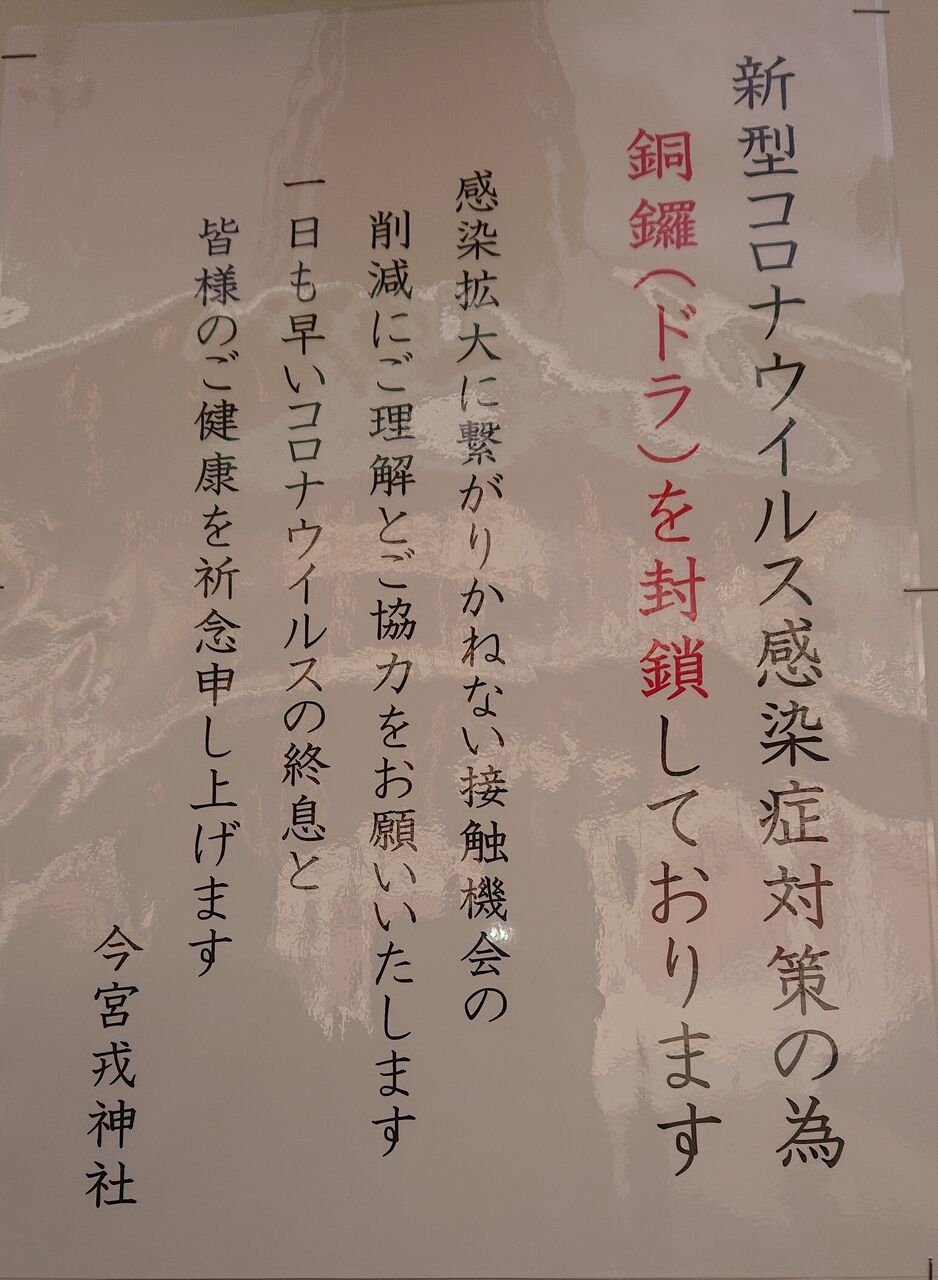 新型コロナウイルス感染症対策の為
銅鑼(ドラ)を封鎖しております
感染拡大に繋がりかねない接触機会の
削減にご理解とご協力をお願いいたします
一日も早いコロナウイルスの終息と
皆様のご健康を祈念申し上げます
今宮戎神社